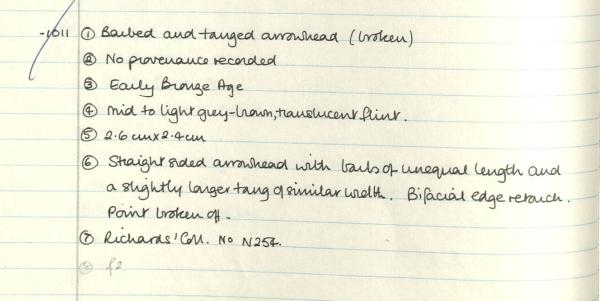 -1011 ① Barbed and tanged arrowhead (broken)
② No provenance recorded
③ Early Bronze Age
④ Mid to light grey-brown, translucent flint.
⑤ 2.6cm x 2.4cm
⑥ Straight sided arrowhead with barbs of unequal length and
a slightly larger tang of similar width. Bifacial edge retouch.
Point broken off.
⑦ Richards' Coll. No N254.
⑧ £2